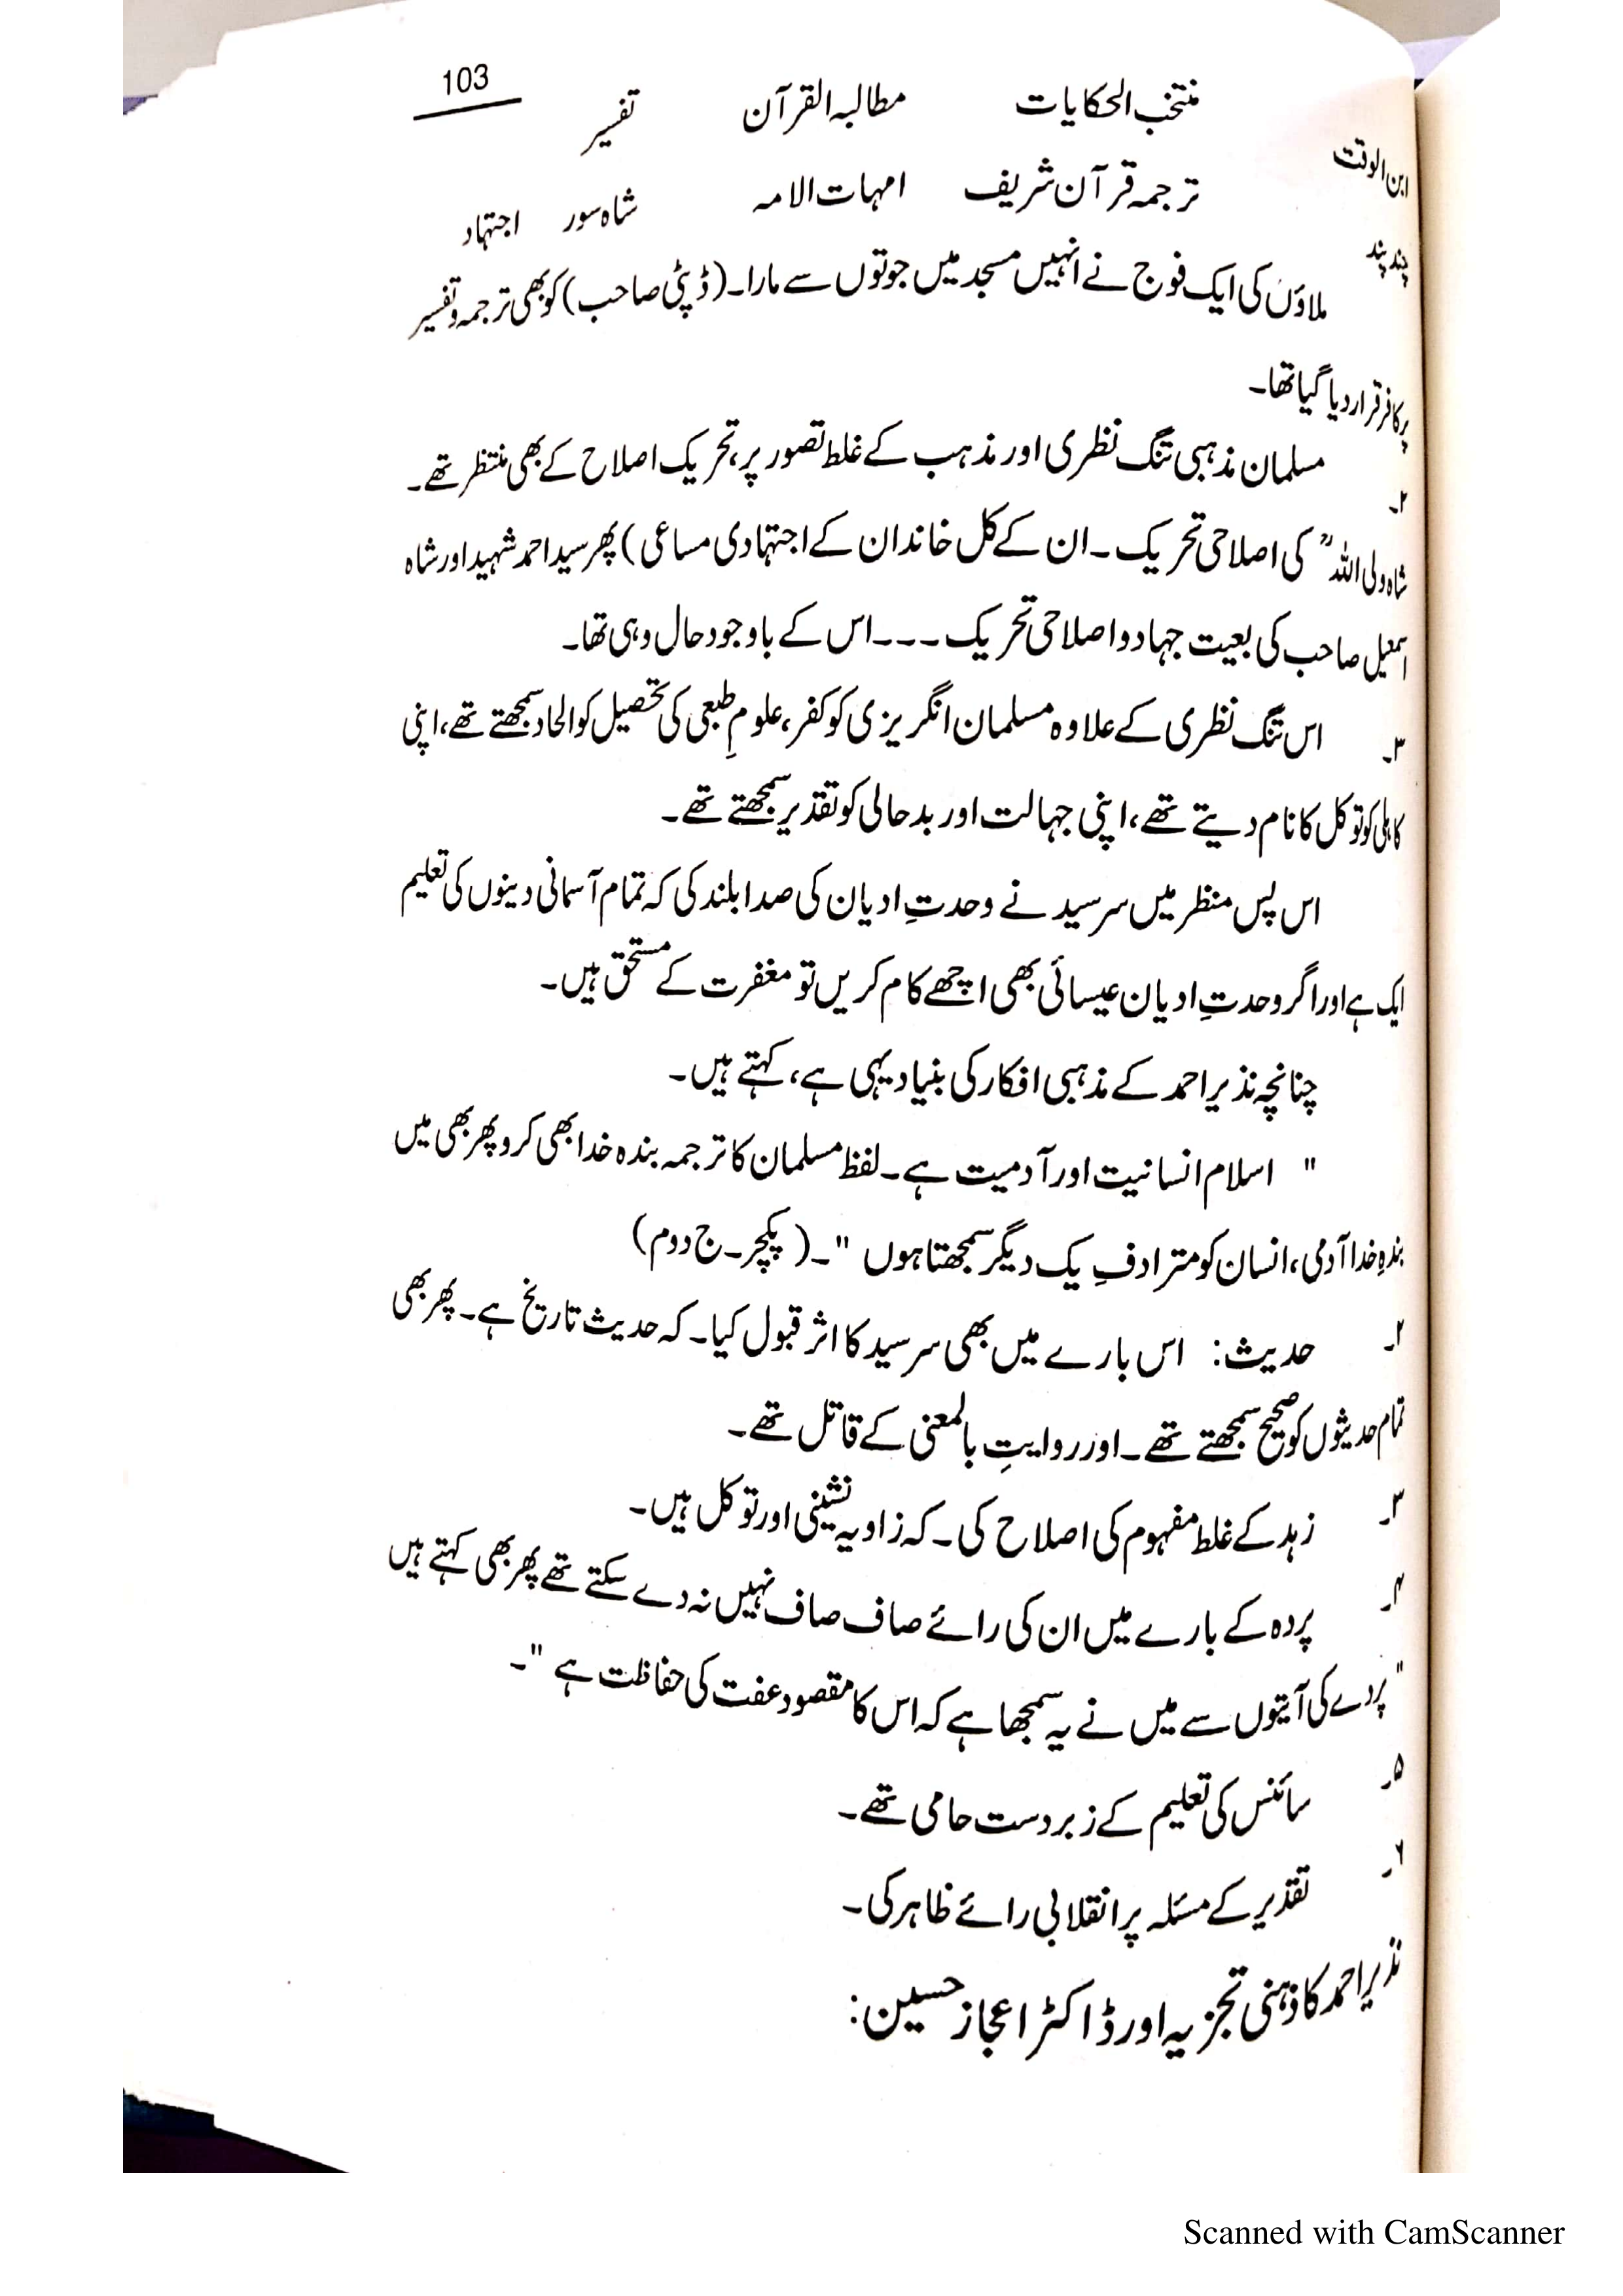 103
ابن الوقت منتخب الحکایات مطالبہ القرآن تفسیر
چند پند ترجمہ قرآن شریف امہات الامہ شاہ سور اجتہاد
ملاؤں کی ایک فوج نے انہیں مسجد میں جوتوں سے مارا۔ (ڈپٹی صاحب) کو بھی ترجمہ و تفسیر
پر کافر قرار دیا گیا تھا۔
۲۔ مسلمان مذہبی تنگ نظری اور مذہب کے غلط تصور پر، تحریک اصلاح کے بھی منتظر تھے۔
شاہ ولی اللہؒ کی اصلاحی تحریک ۔ ان کے کل خاندان کے اجتہادی مساعی) پھر سید احمد شہید اور شاہ
اسمعیل صاحب کی بعیت جہاد و اصلاحی تحریک ۔۔۔ اس کے باوجود حال وہی تھا۔
۳۔ اس تنگ نظری کے علاوہ مسلمان انگریزی کو کفر، علومِ طبعی کی تحصیل کو الحاد سمجھتے تھے، اپنی
کاہلی کو توکل کا نام دیتے تھے، اپنی جہالت اور بدحالی کو تقدیر سمجھتے تھے۔
اس پس منظر میں سرسید نے وحدتِ ادیان کی صدا بلند کی کہ تمام آسمانی دینوں کی تعلیم
ایک ہے اور اگر وحدتِ ادیان عیسائی بھی اچھے کام کریں تو مغفرت کے مستحق ہیں۔
چنانچہ نذیر احمد کے مذہبی افکار کی بنیاد یہی ہے، کہتے ہیں۔
" اسلام انسانیت اور آدمیت ہے۔ لفظ مسلمان کا ترجمہ بندہ خدا بھی کرو پھر بھی میں
بندہِ خدا آدمی، انسان کو مترادفِ یک دیگر سمجھتا ہوں "۔ ( پکچر۔ ج دوم)
۲۔ حدیث: اس بارے میں بھی سرسید کا اثر قبول کیا۔ کہ حدیث تاریخ ہے۔ پھر بھی
تمام حدیثوں کو صحیح سمجھتے تھے۔ اور روایتِ بالمعنی کے قائل تھے۔
۳۔ زہد کے غلط مفہوم کی اصلاح کی۔ کہ زاویہ نشینی اور توکل ہیں۔
۴۔ پردہ کے بارے میں ان کی رائے صاف صاف نہیں نہ دے سکتے تھے پھر بھی کہتے ہیں
" پردے کی آیتوں سے میں نے یہ سمجھا ہے کہ اس کا مقصود عفت کی حفاظت ہے "۔
۵۔ سائنس کی تعلیم کے زبردست حامی تھے۔
۶۔ تقدیر کے مسئلہ پر انقلابی رائے ظاہر کی۔
نذیر احمد کا ذہنی تجزیہ اور ڈاکٹر اعجاز حسین:
Scanned with CamScanner